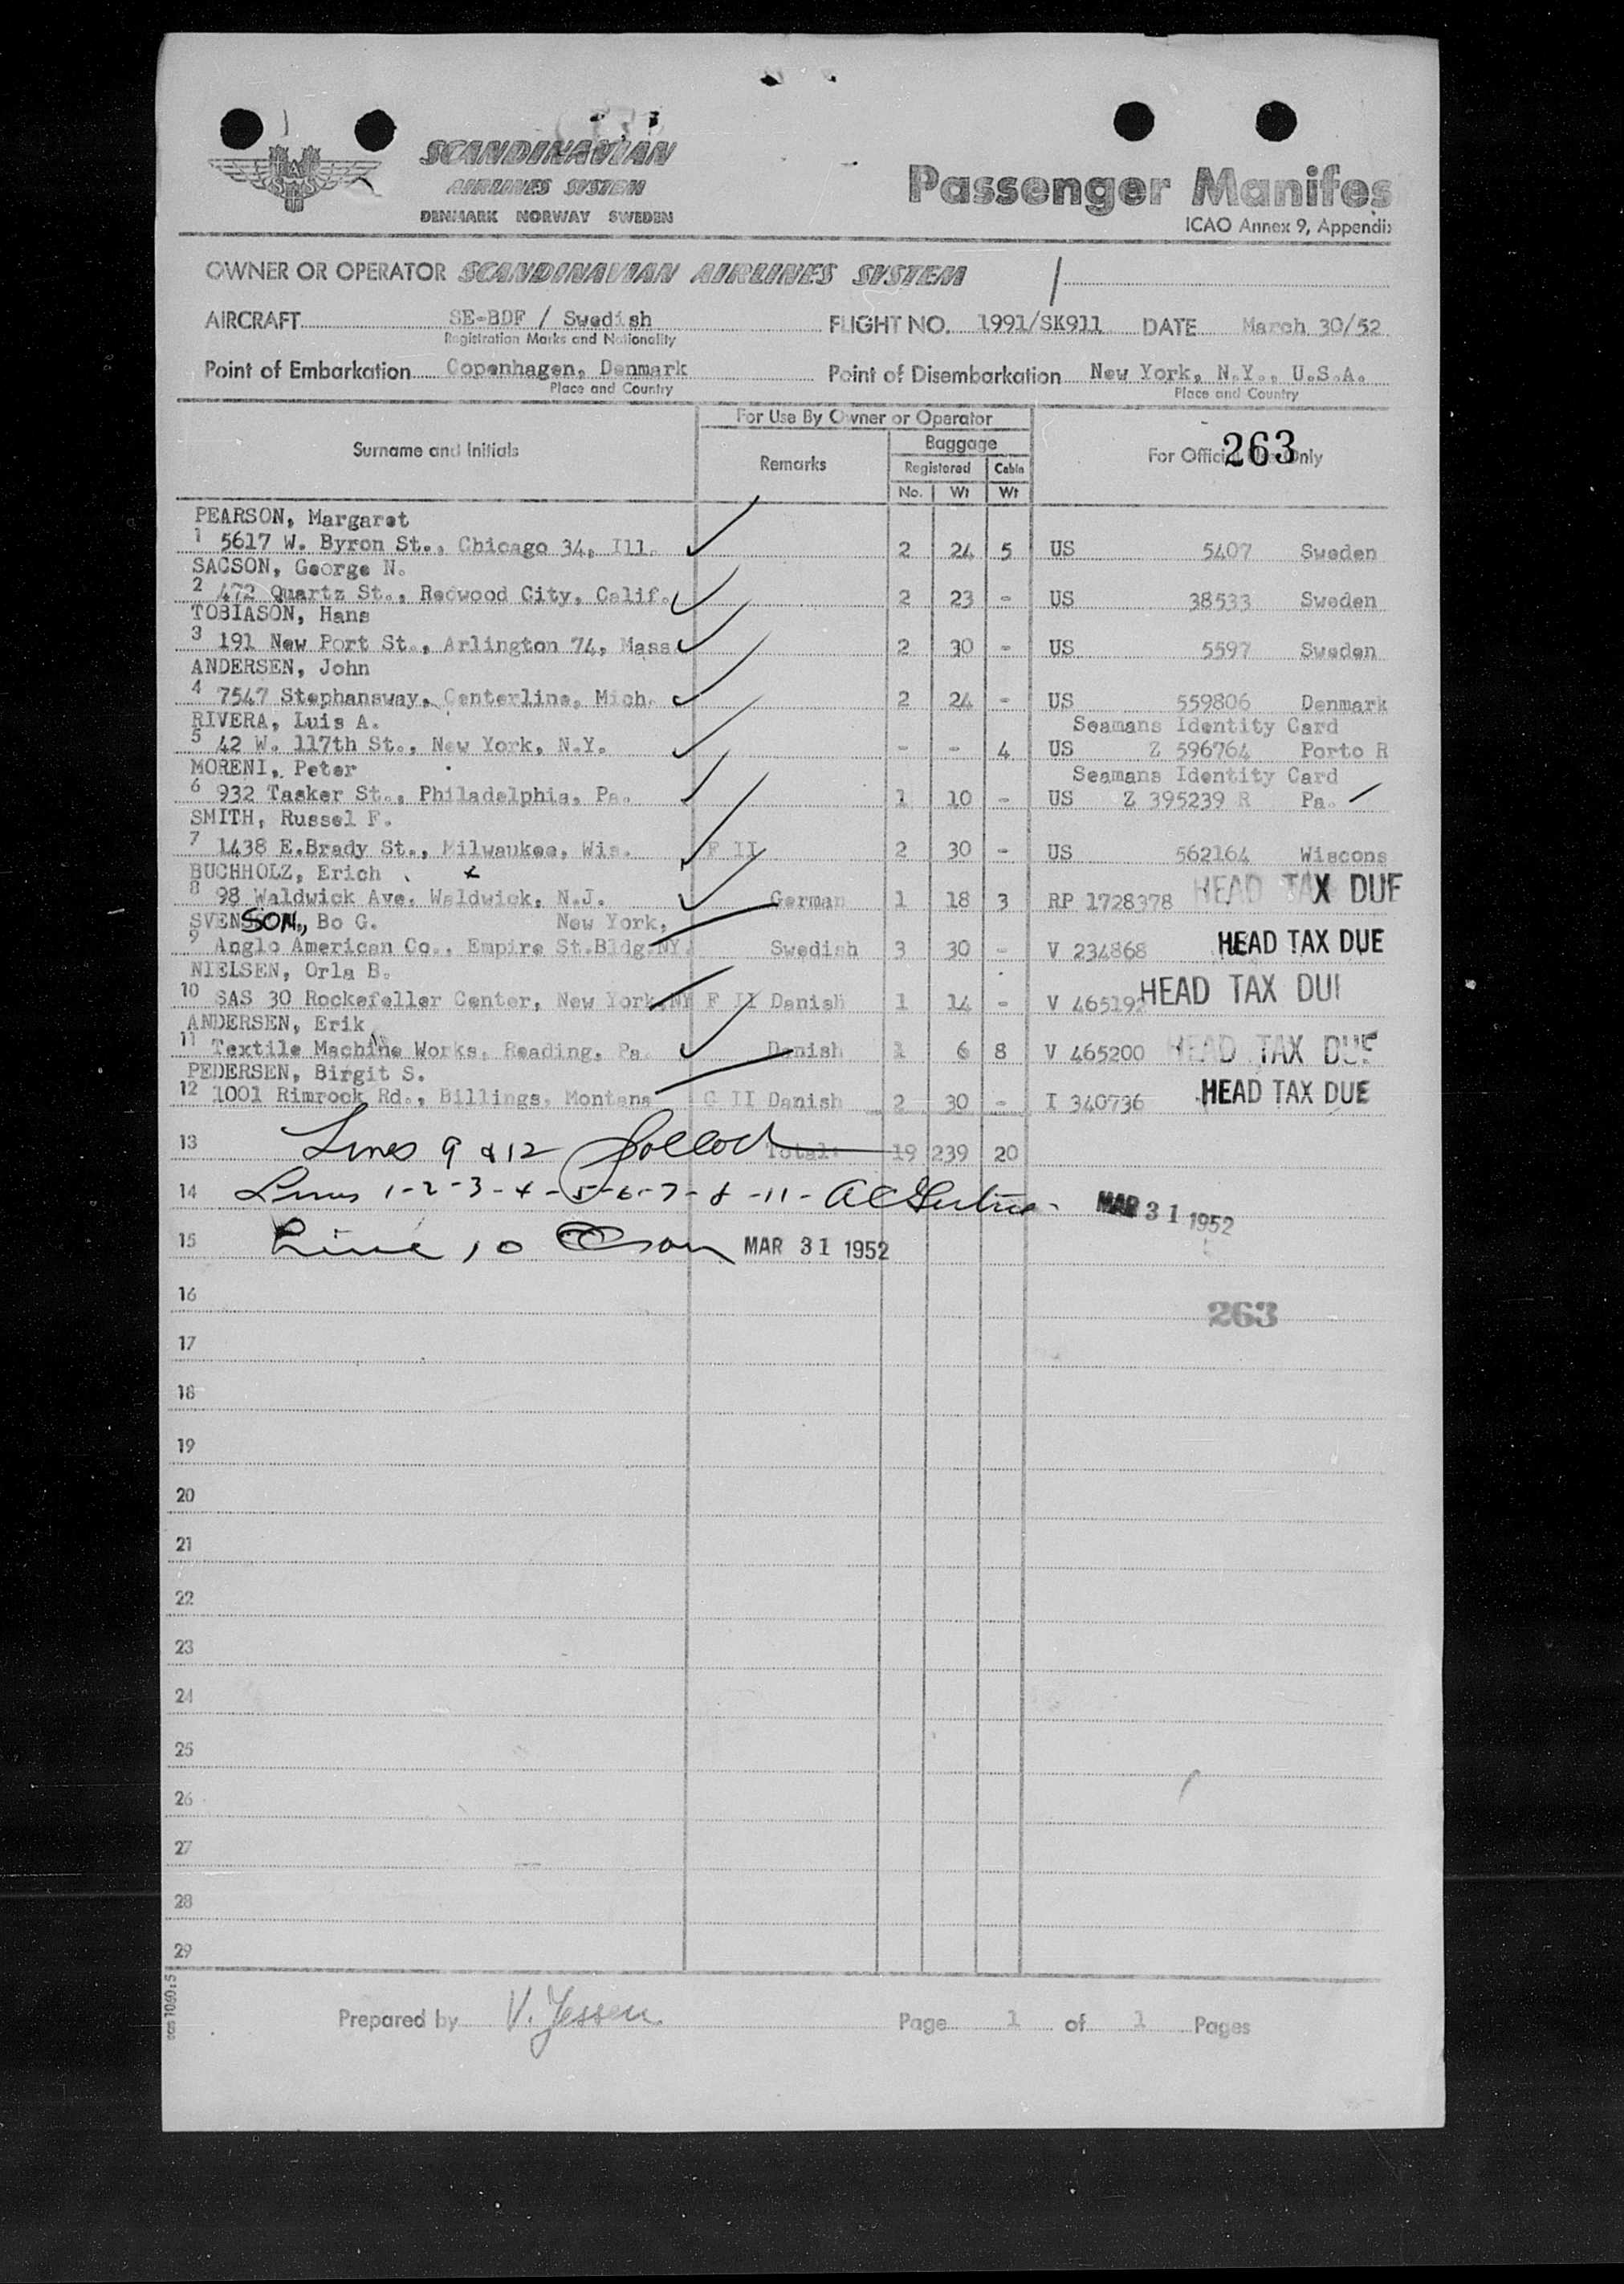 SCANDINAVIAN
AIRLINES SYSTEM
DENMARK NORWAY SWEDEN
Passenger Manifes
ICAO Annex 9, Appendix
OWNER OR OPERATOR SCANDINAVIAN AIRLINES SYSTEM
AIRCRAFT SE-BDF / Swedish FLIGHT NO. 1991/SK911 DATE March 30/52
Registration Marks and Nationality
Point of Embarkation Copenhagen, Denmark Point of Disembarkation New York, N.Y., U.S.A.
Place and Country Place and Country
For Use By Owner or Operator
Surname and Initials Remarks Baggage For Official Use Only 263
Registered Cabin
No. Wt Wt
PEARSON, Margaret
1 5617 W. Byron St., Chicago 34, Ill. 2 24 5 US 5407 Sweden
SACSON, George N.
2 472 Quartz St., Redwood City, Calif. 2 23 - US 38533 Sweden
TOBIASON, Hans
3 191 New Port St., Arlington 74, Mass 2 30 - US 5597 Sweden
ANDERSEN, John
4 7547 Stephansway, Centerline, Mich. 2 24 - US 559806 Denmark
RIVERA, Luis A. Seamans Identity Card
5 42 W. 117th St., New York, N.Y. - - 4 US Z 596764 Porto R
MORENI, Peter Seamans Identity Card
6 932 Tasker St., Philadelphia, Pa. 1 10 - US Z 395239 R Pa.
SMITH, Russel F.
7 1438 E.Brady St., Milwaukee, Wis. F II 2 30 - US 562164 Wiscons
BUCHHOLZ, Erich
8 98 Waldwick Ave. Waldwick, N.J. German 1 18 3 RP 1728378 HEAD TAX DUE
SVENSON, Bo G. New York,
9 Anglo American Co., Empire St.Bldg.NY. Swedish 3 30 - V 234868 HEAD TAX DUE
NIELSEN, Orla B.
10 SAS 30 Rockefeller Center, New York,NY F II Danish 1 14 - V 465192 HEAD TAX DUE
ANDERSEN, Erik
11 Textile Machine Works, Reading, Pa. Danish 1 6 8 V 465200 HEAD TAX DUE
PEDERSEN, Birgit S.
12 1001 Rimrock Rd., Billings, Montana C II Danish 2 30 - I 340736 HEAD TAX DUE
13 Lines 9 & 12 Total: 19 239 20
14 Lines 1-2-3-4-5-6-7-8-11- MAR 31 1952
15 Line 10 MAR 31 1952
16
263
17
18
19
20
21
22
23
24
25
26
27
28
29
sas 1060:5
Prepared by V. Jessen Page 1 of 1 Pages